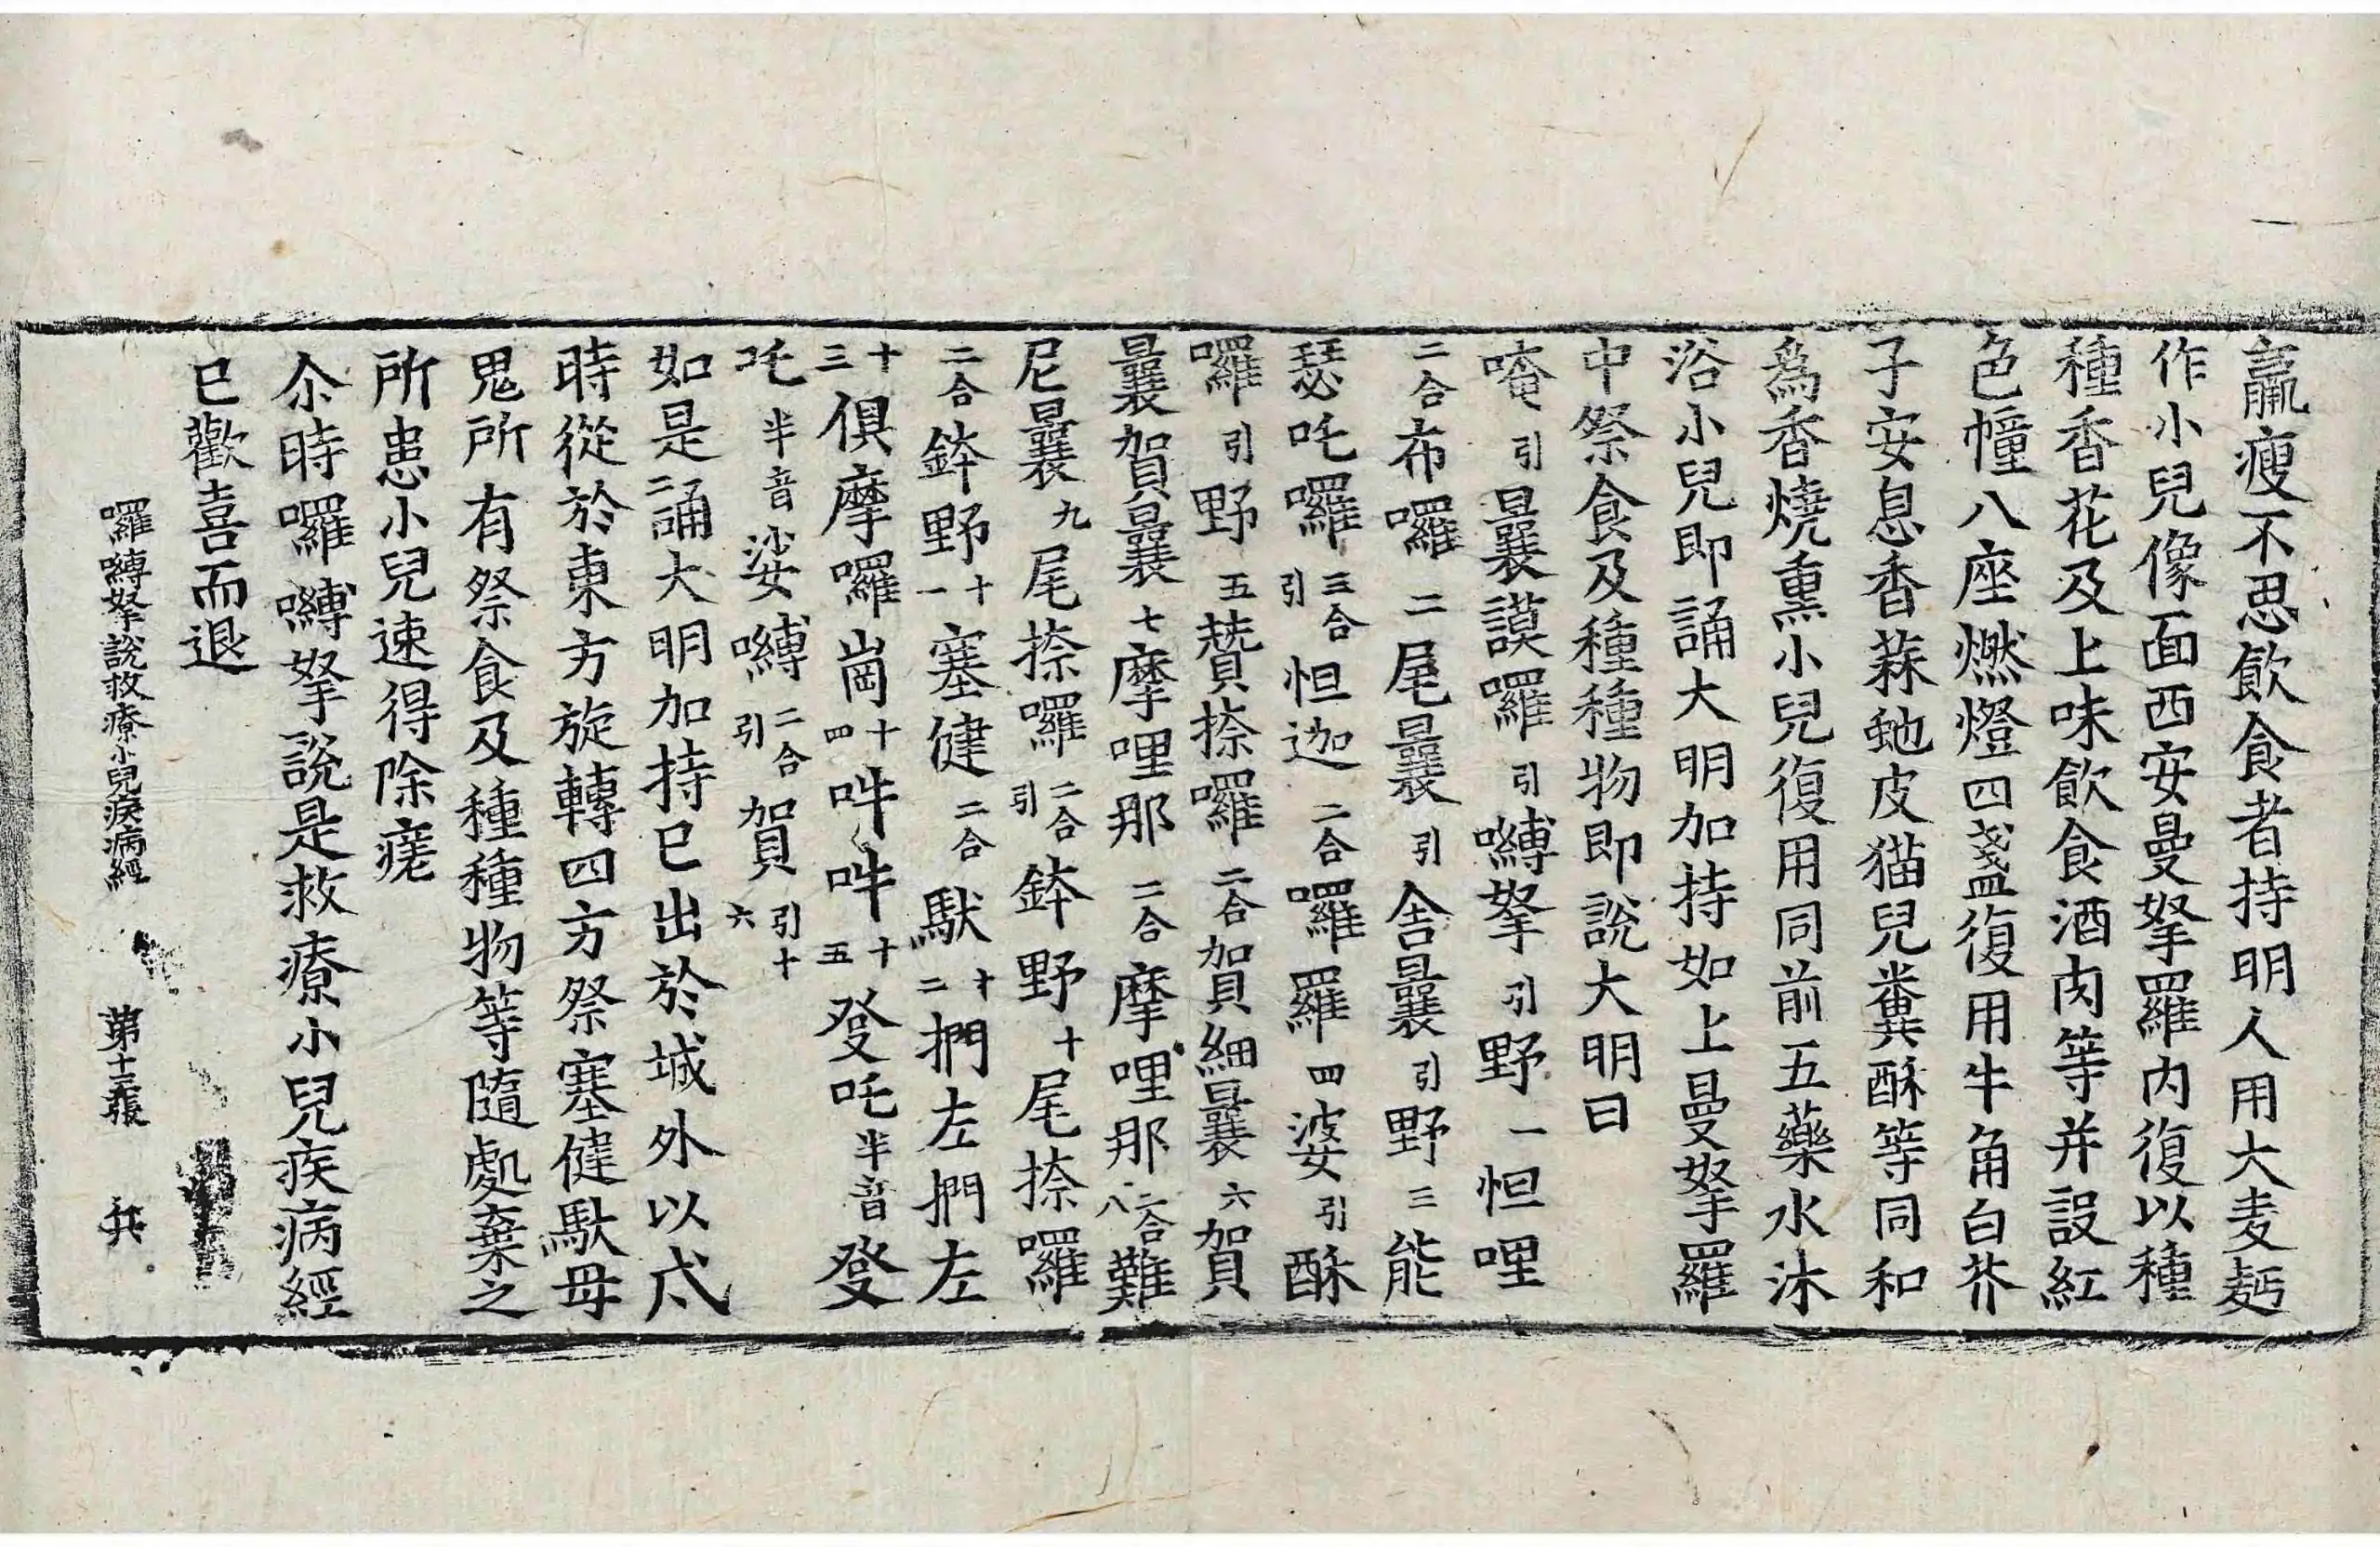 羸瘦不思飲食者持明人用大麦麪
作小兒像面西安曼拏羅内復以種
種香花及上味飲食酒肉等并設紅
色幢八座燃燈四盞復用牛角白芥
子安息香蒜虵皮猫兒糞酥等同和
爲香燒熏小兒復用同前五藥水沐
浴小兒即誦大明加持如上曼拏羅
中祭食及種種物即說大明曰
唵引曩謨囉引嚩拏引野一怛哩
二合布囉二尾曩引舎曩引野三能
瑟吒囉三合引怛迦二合囉羅四婆引酥
囉引野五贊捺囉二合賀細曩六賀
曩賀曩七摩哩那二合摩哩那二合八難
尼曩九尾捺囉二合引鉢野十尾捺囉
二合鉢野十一塞健二合馱十二捫左捫左
十三俱摩囉崗十四吽吽十五發吒半音發
吒半音娑嚩二合引賀引十六
如是二誦大明加持已出於城外以戍
時從於東方旋轉四方祭塞健馱母
鬼所有祭食及種種物等隨處棄之
所患小兒速得除瘥
尒時囉嚩拏說是救療小兒疾病經
已歡喜而退
囉嚩拏說救療小兒疾病經 第十三張 兵